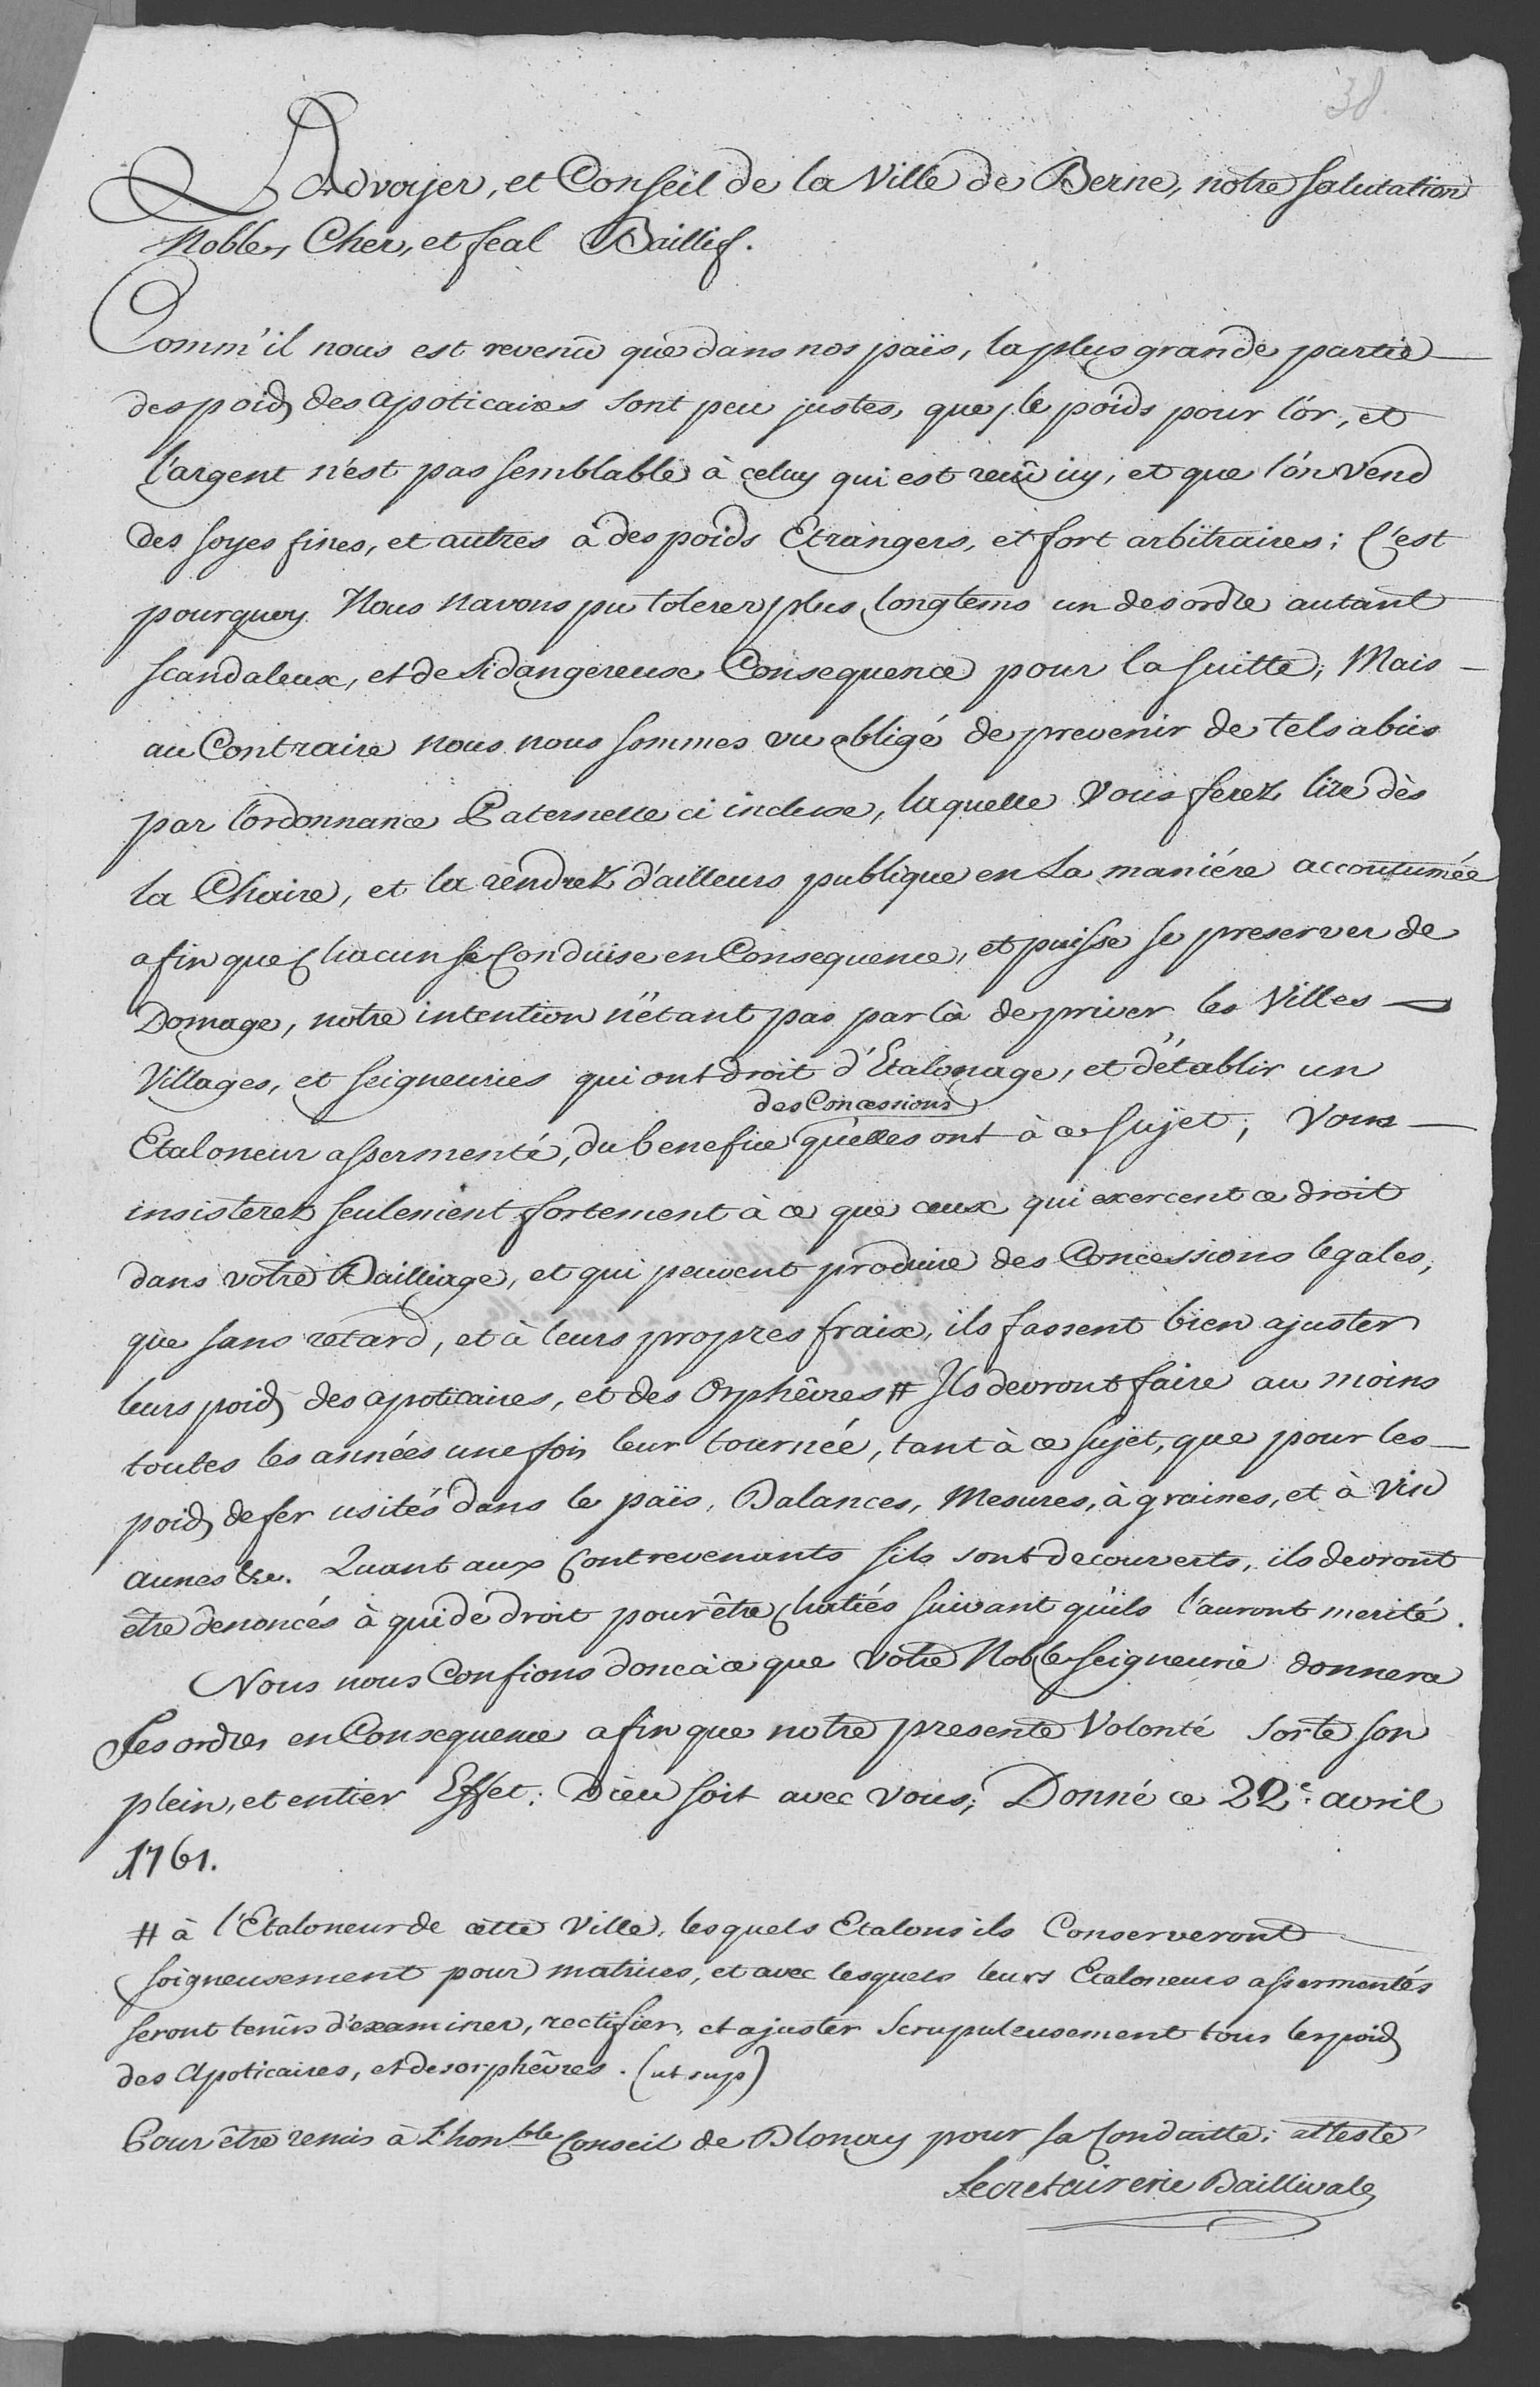 38
Advoyer, et Conseil de la Ville de Berne, notre salutation
Noble, Cher, et feal Baillif.
Comm'il nous est revenû que dans nos païs, la plus grande partie
des poids des apoticaires sont peu justes, que le poids pour l'or, et
l'argent n'est pas semblable à celuy qui est reçû icy, et que l'on vend
des soyes fines, et autres à des poids Etrangers, et fort arbitraires: C'est
pourquoy Nous n'avons pu tolerer plus longtems un desordre autant
scandaleux, et de si dangereuse Consequence pour la suitte; Mais
au Contraire nous nous sommes vu obligé de prevenir de tels abus
par l'ordonnance Paternelle ci incluse, laquelle vous ferez lire dès
la Chaire, et la rendrez d'ailleurs publique en la maniére accoutumée
afin que chacun se Conduise en Consequence, et puisse se preserver de
Domage, notre intention n'étant pas par là de priver les Villes
Villages, et seigneuries qui ont droit d'Etalonage, et d'établir un
des Concessions
Etaloneur assermenté, du benefice qu'elles ont à ce sujet; Vous
insisterez seulement fortement à ce que ceux qui exercent ce droit
dans votre Bailliage, et qui peuvent produire des Concessions legales,
que sans retard, et à leurs propres fraix, ils fassent bien ajuster
leurs poids des apoticaires, et des Orphêvres # Ils devront faire au moins
toutes les années une fois leur tournée, tant à ce sujet, que pour les
poids de fer usités dans le païs, Balances, Mesures, à graines, et à vin
aunes &c. Quant aux Contrevenants s'ils sont decouverts, ils devront
être dénoncés à qui de droit pour être chatiés suivant qu'ils l'auront merité.
Nous nous Confions donc à ce que votre Noble seigneurie donnera
ses ordres en Consequence afin que notre presente Volonté sorte son
plein, et entier Effet. Dieu soit avec vous; Donné ce 22e. avril
1761.
# à l'Etaloneur de cette Ville, lesquels Etalons ils Conserveront
soigneusement pour matrices, et avec lesquels leurs Etaloneurs assermentés
seront tenûs d'examiner, rectifier, et ajuster scrupuleusement tous les poids
des Apoticaires, et des orphêvres. (ut sup)
Pour être remis à L'honble Conseil de Blonay pour sa Conduitte; atteste
Secretairerie Baillivale